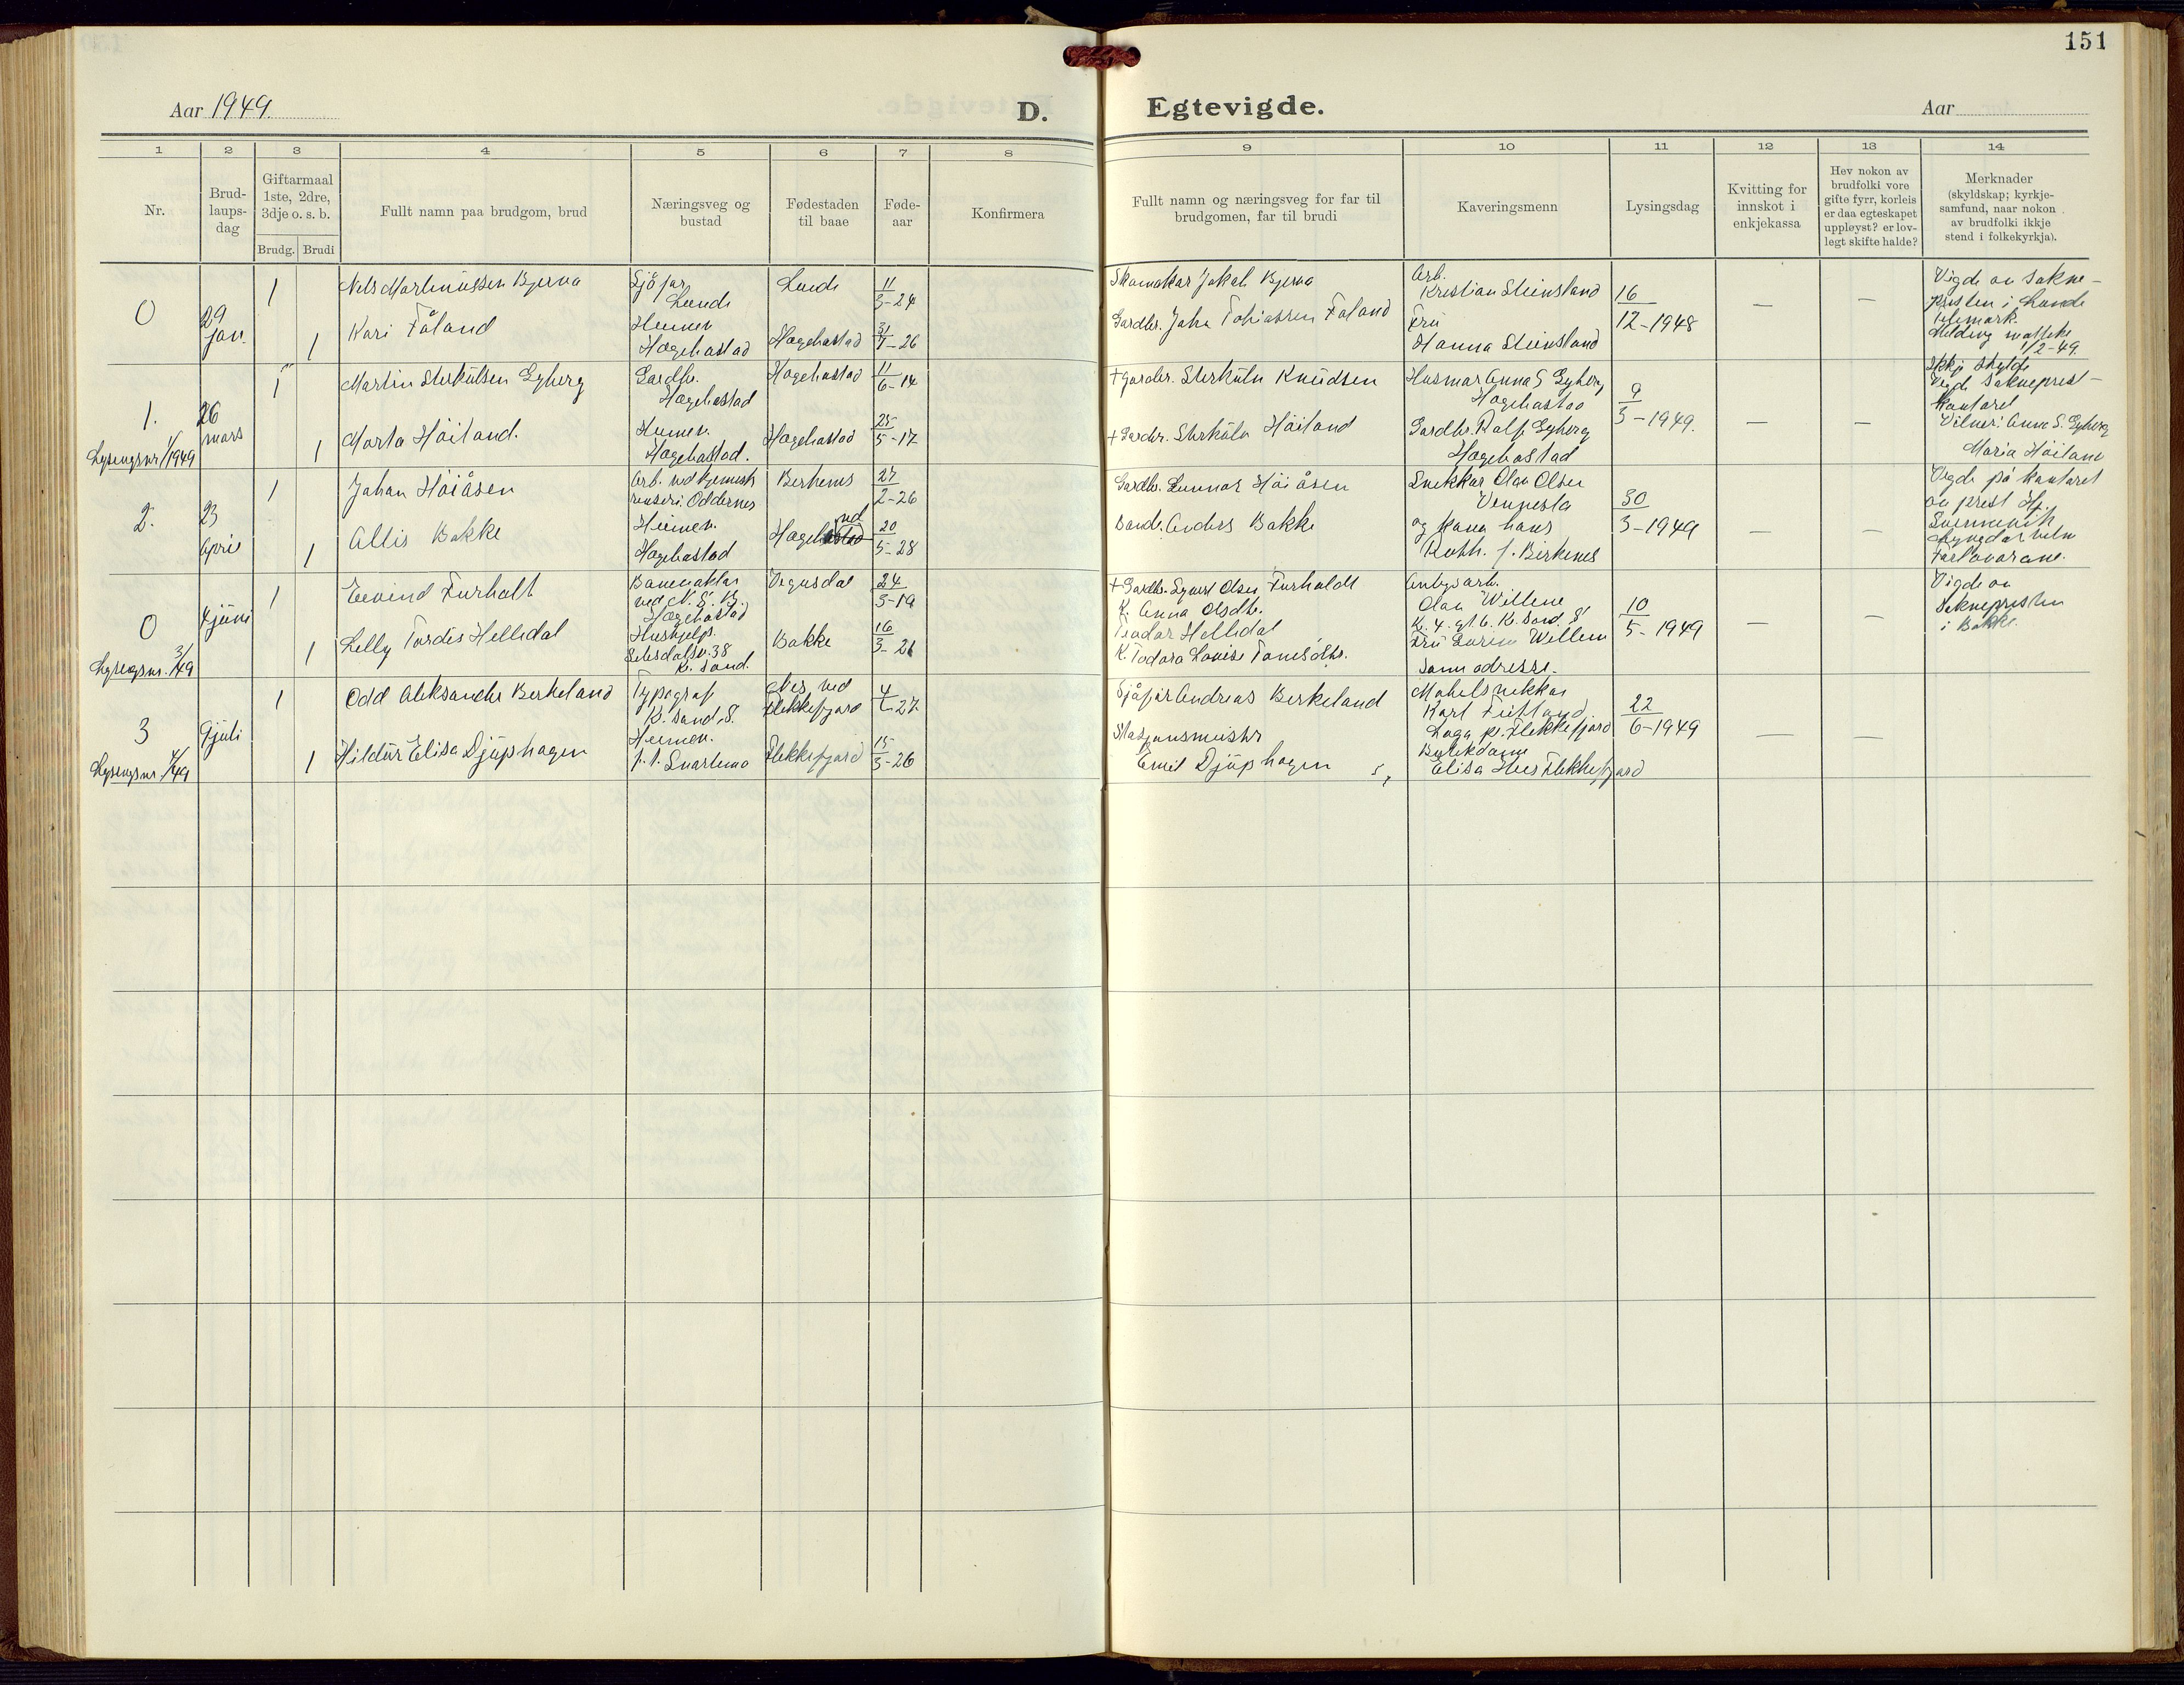 151
Aar 1949.
D. Egtevigde.
Aar
1 2 3 4 5 6 7 8 9 10 11 12 13 14
Nr.
Brud-
laups-
dag
Giftarmaal
1ste, 2dre,
3dje o. s. b.
Brudg. Brudi
Fullt namn paa brudgom, brud
Næringsveg og
bustad
Fødestaden
til baae
Føde-
aar
Konfirmera
Fullt namn og næringsveg for far til
brudgomen, far til brudi
Kaveringsmenn
Lysingsdag
Kvitting for
innskot i
enkjekassa
Hev nokon av
brudfolki vore
gifte fyrr, korleis
er daa egteskapet
uppløyst? er lov-
legt skifte halde?
Merknader
(skyldskap; kyrkje-
samfund, naar nokon
av brudfolki ikkje
stend i folkekyrkja).
0
29
jan.
1
Nels Martinussen Bjerva
Sjåfør
Lunde
Lunde
11/3-24
Skomakar Jakob Bjerva
Arb.
Kristian Steinsland
16/12-1948
—
—
Vigde av sokne-
presten i Lunde
Telemark.
Melding motteke
1/2-49.
1
Kari Fåland
Heimev.
Hægebostad
Hægebostad
31/7-26
Gardbr. John Tobiassen Faland
Fru
Hanna Steinsland
1.
Lysingsnr. 1/1949
26
mars
1
Martin Sterkulsen Eyberg
Gardbr.
Hægebostad
Hægebostad
11/6-14
+ Gardbr. Sterkuln Knudsen
Husmor Anna S Eyberg
Hægebostad
9/3-1949.
—
—
Ikkje skylde
Vigde Sokneprest-
kontoret
Vitner: Anna S. Eyberg
Maria Høiland
1
Marta Høiland.
Heimev.
Hægebostad.
Hægebostad
25/5-17
+ Gardbr. Sterkuln Høiland
Gardbr. Ralf Eyberg
Hægebostad
2.
23
April
1
Johan Høiåsen
Arb. ved kjemisk
renseri. Oddernes
Birkenes
27/2-26
Gardbr. Gunnar Høiåsen
Snekkar Olav Olsen
Vennesla
30/3-1949
—
—
Vigde på kontoret
av prest Hj.
Svennevik
1
Allis Bakke
Heimev.
Hægebostad
Hægeland
20/5-28
Bonde. Anders Bakke
og kona hans
Kath. f. Birkenes
0
Lysingsnr. 3/49
4 juni
1
Eivind Furholt
Banevaktar
ved N. S. B.
Hægebostad
Vegusdal
24/3-19
+ Gardbr. Syvert Olsen Furholdt
K. Anna Olsdtr.
Anlegsarb.
Olav Willene
K. 4. gt. 6. K. Sand. S.
10/5-1949
—
—
Vigde av
Sokneprestен
i Bakke.
1
Lilly Tordis Helledal
Hushjelp.
Setesdalsv. 38
K. Sand.
Bakke
16/3-21
Teodor Helledal
K. Todora Lovise Tonesdtr.
Fru Willem
Samme adresse.
3
Lysingsnr. 4/49
9 juli
1
Odd Aleksander Berkeland
Typograf
K. Sand. S.
Nes ved
Flekkefjord
4/7-27
Sjåfør Andreas Berkeland
Møbelsnekkar
Karl Fietland
Loga pr. Flekkefjord
22/6-1949
—
—
1
Hildur Elisa Djuphagen
Heimev.
p. t. Snartemo
Flekkefjord
15/3-26
Stasjonsmeister
Emil Djuphagen
Butikdame
Elisa Hees Flekkefjord